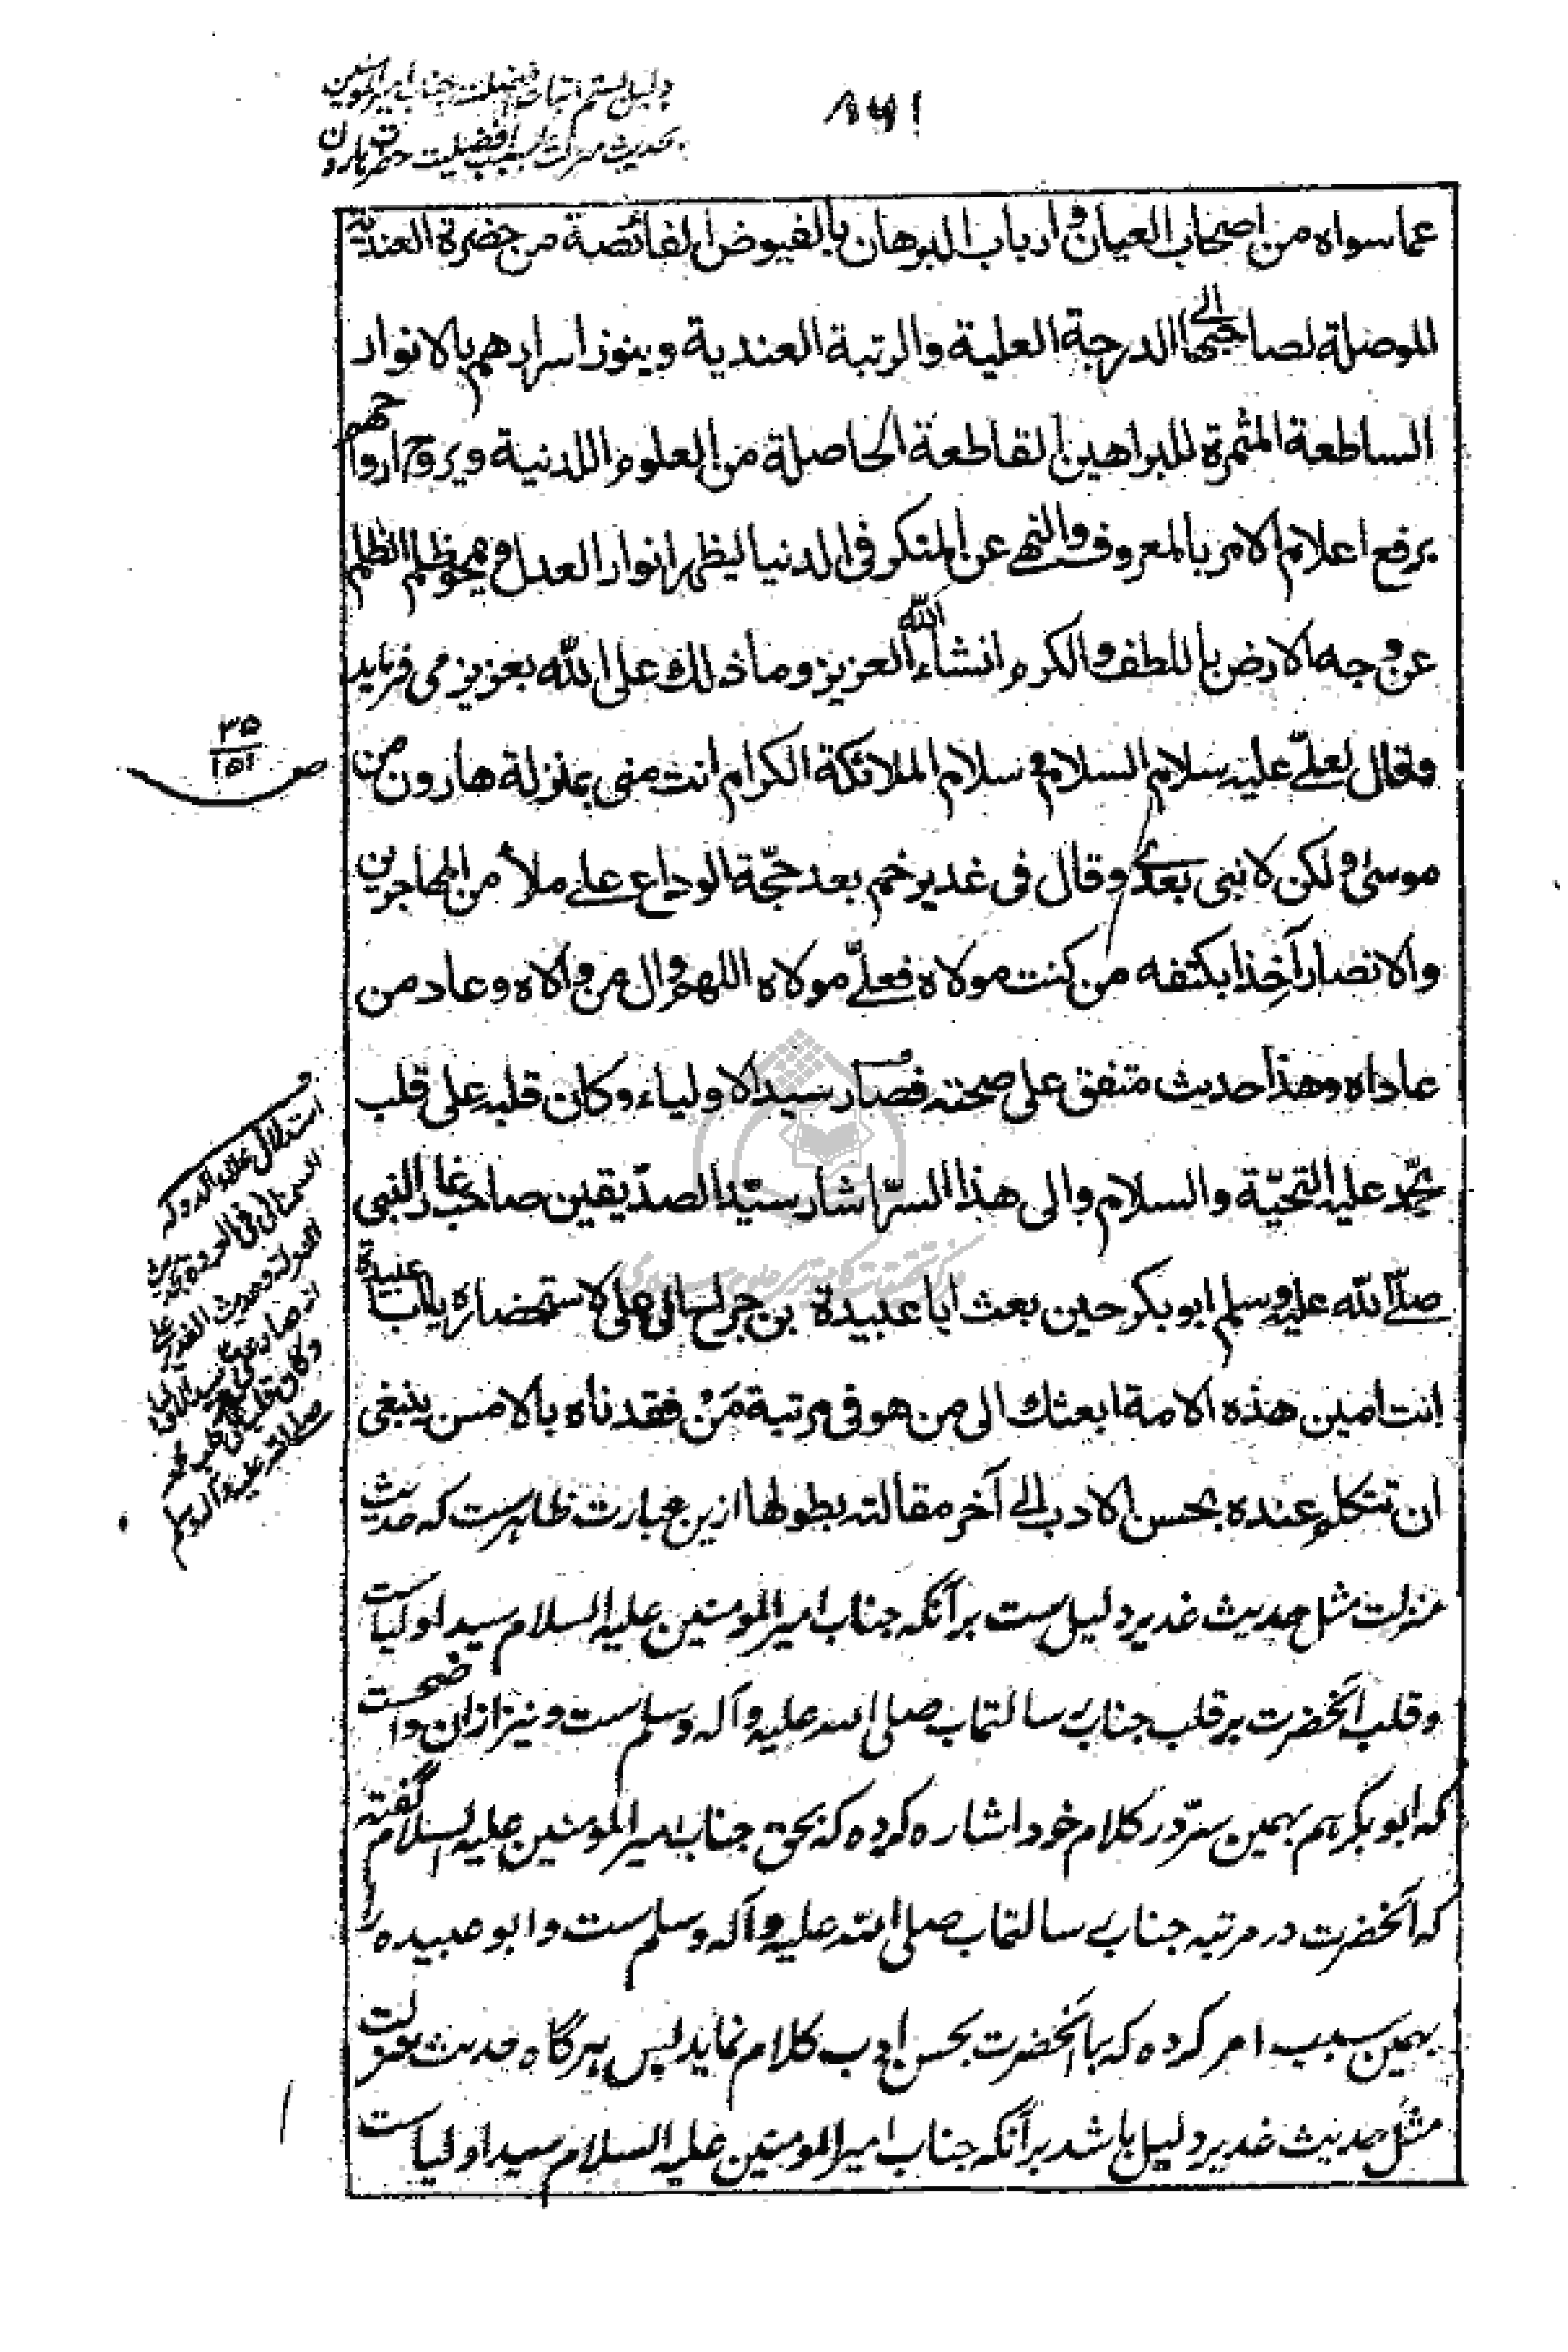 ۸۶۱
دلیل بستم اثبات افضلیت جناب امیرالمومنین
بحدیث منزلت بسبب افضلیت حضرت هارون
عما سواه من اصحاب العیان و ارباب البرهان بالفیوض الفائضة من حضرة العندیة
الموصلة لصاحبها الی الدرجة العلیة والرتبة العندیة وینور اسرارهم بالانوار
الساطعة المثمرة للبراهین القاطعة الحاصلة من العلوم اللدنیة ویروح ارواحهم
برفع اعلام الامر بالمعروف والنهی عن المنکر فی الدنیا لیظهر انوار العدل ویمحو ظلم الظلم
عن وجه الارض باللطف والکرم انشاء الله العزیز وما ذلک علی الله بعزیز می فرماید
وقال لعلیّ علیه سلام السلام و سلام الملائکة الکرام انت منی بمنزلة هارون من
موسی ولکن لا نبی بعدی وقال فی غدیر خم بعد حجّة الوداع علی ملأ من المهاجرین
والانصار آخذا بکتفه من کنت مولاه فعلیّ مولاه اللهم وال من والاه وعاد من
عاداه وهذا حدیث متفق علی صحته فصار سید الاولیاء وکان قلبه علی قلب
محمّد علیه التحیّة والسلام والی هذا السرّ اشار سیّد الصدّیقین صاحب غار النبی
صلّی الله علیه وسلم ابو بکر حین بعث ابا عبیدة بن جراح الی علی لاستحضاره یا ابا عبیدة
انت امین هذه الامة ابعثك الی من هو فی مرتبة مَنْ فقدناه بالامس ینبغی
ان تتکلم عنده بحسن الادب الی آخر مقالته بطولها ازین عبارت ظاهرست که حدیث
منزلت مثل حدیث غدیر دلیل ست بر آنکه جناب امیر المومنین علیه السلام سید اولیاست
وقلب آنحضرت بر قلب جناب رسالتمآب صلی الله علیه وآله وسلم ست و نیز ازان واضحست
که ابو بکر هم بهمین سرّ در کلام خود اشاره کرده که بحق جناب امیر المومنین علیه السلام گفته
که آنحضرت در مرتبه جناب رسالتمآب صلی الله علیه وآله وسلم ست و ابو عبیده را
بهمین سبب امر کرده که با آنحضرت بحسن ادب کلام نماید پس هرگاه حدیث منزلت
مثل حدیث غدیر دلیل باشد بر آنکه جناب امیر المومنین علیه السلام سید اولیاست
ص ۳۵
۱۵۱
استدلال علاء الدوله
السمنانی فی العروة بحدیث
المنزلة وحدیث الغدیر علی
انه صار سید الاولیاء
وکان قلبه علی قلب محمد
صلی الله علیه وآله وسلم